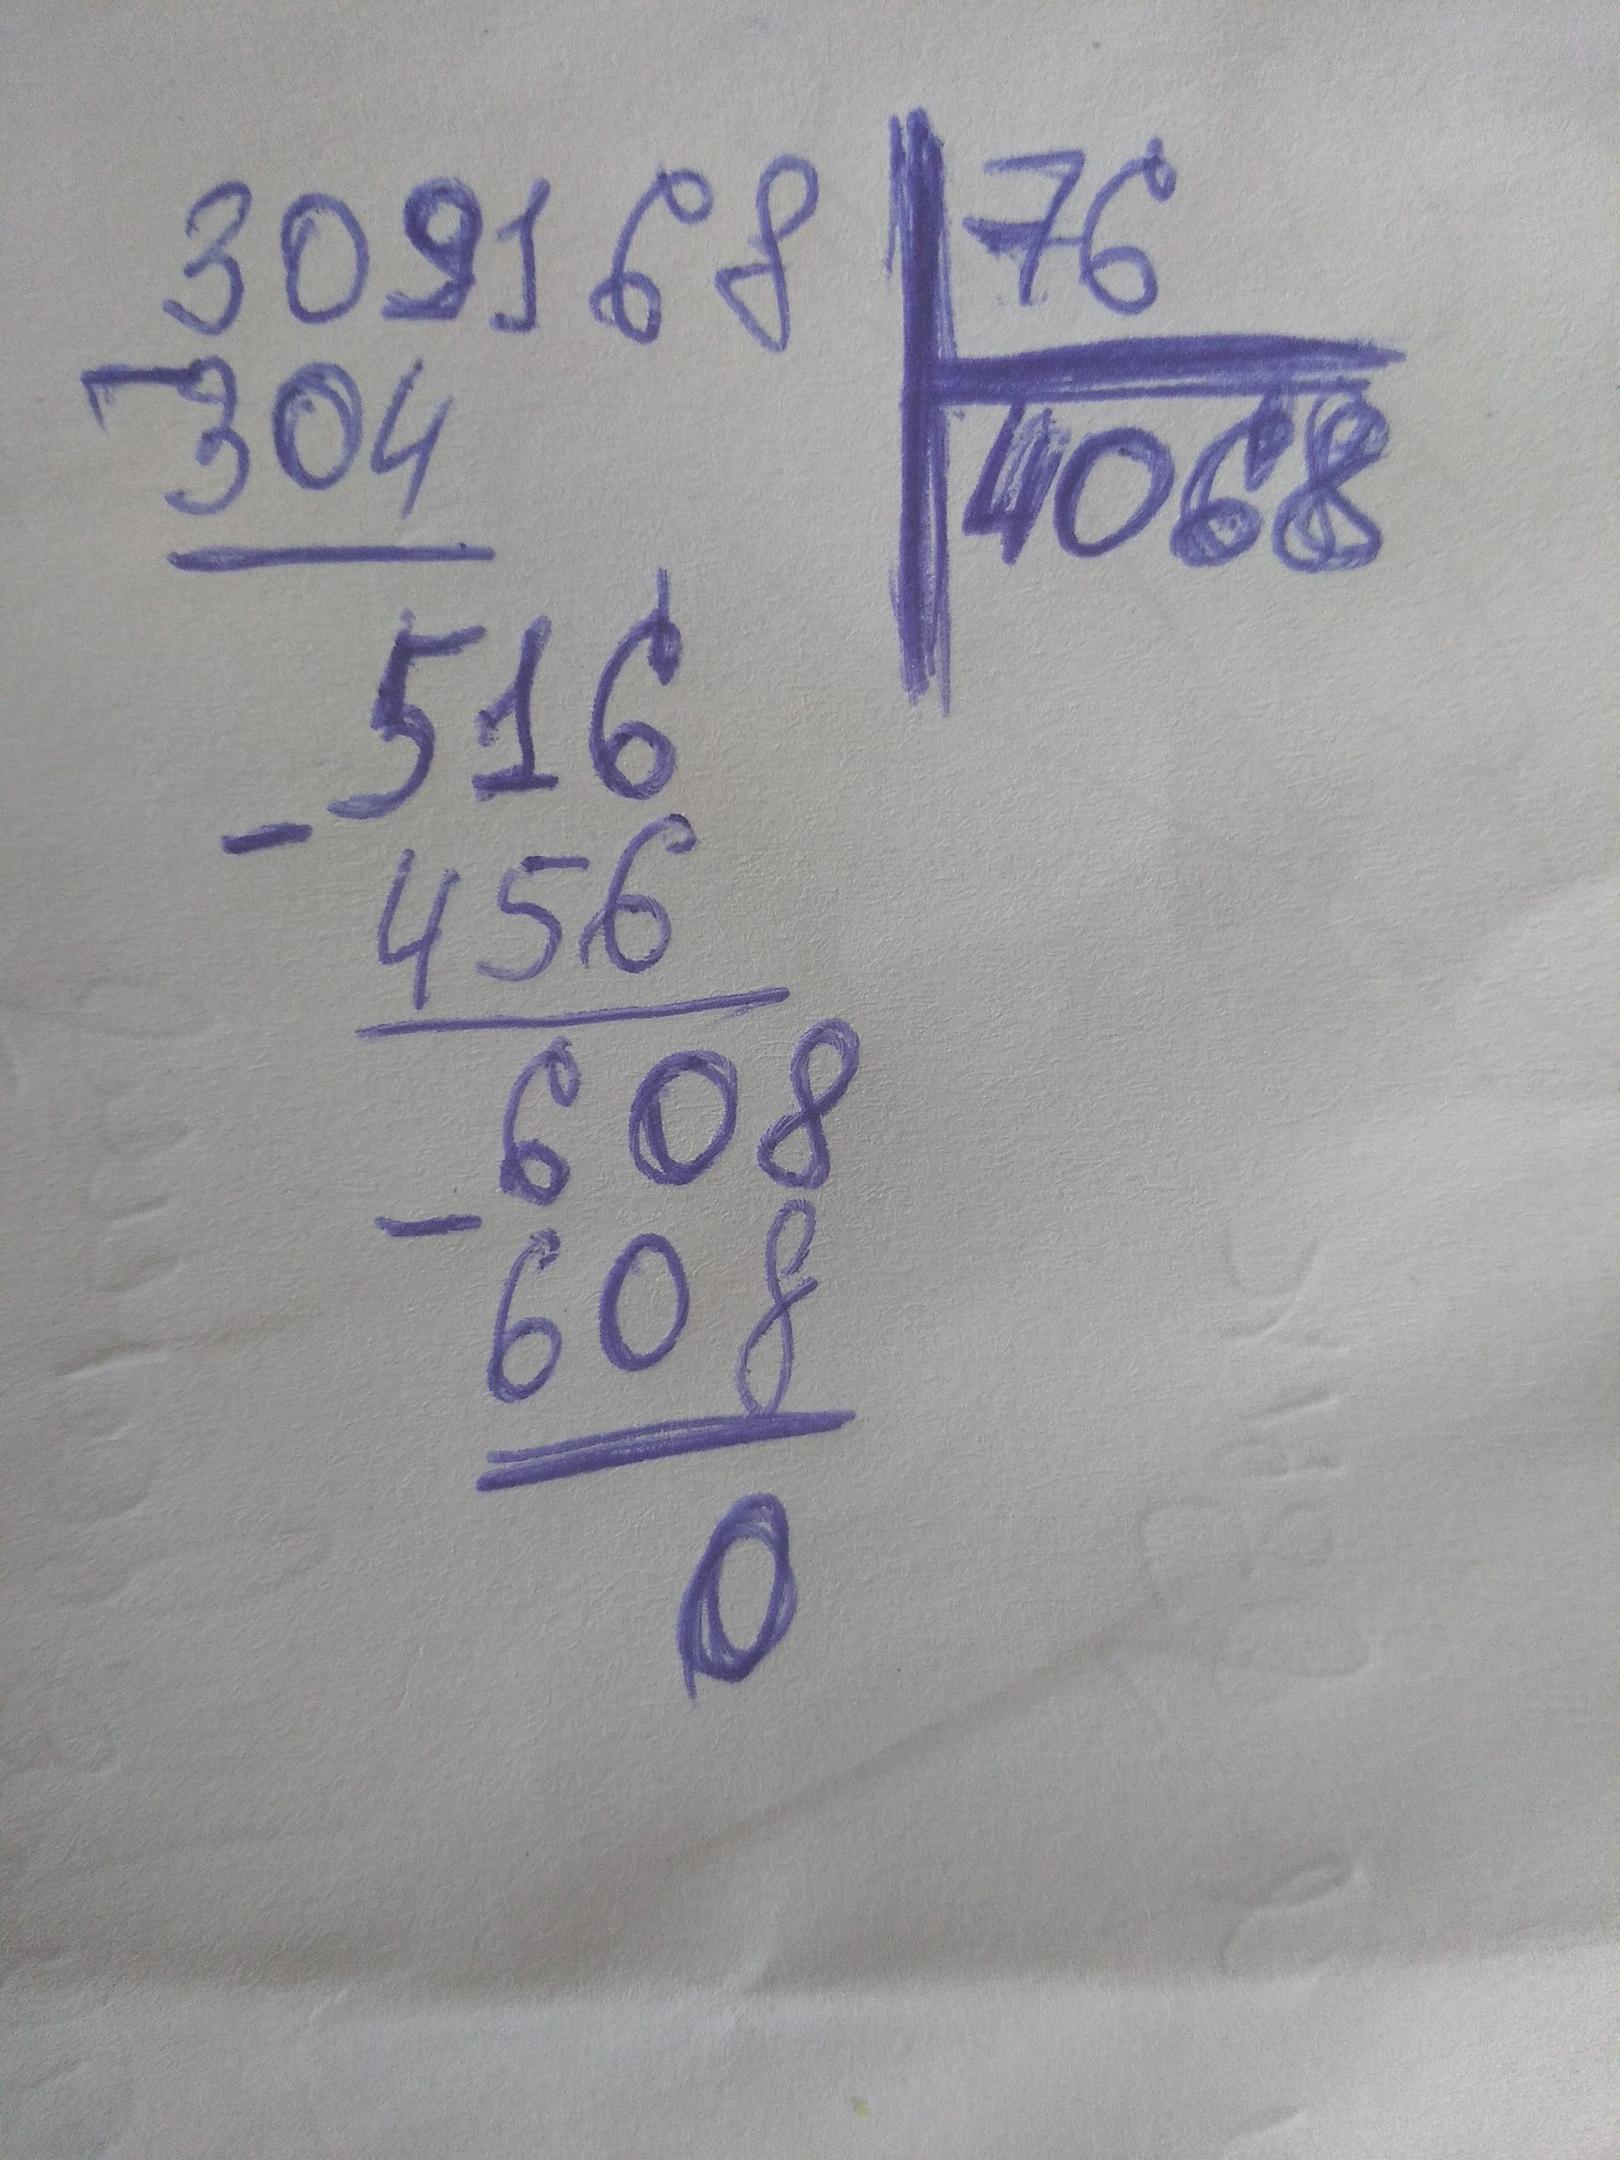 309168 76
-304 4068
516
-
456
608
-
608
0